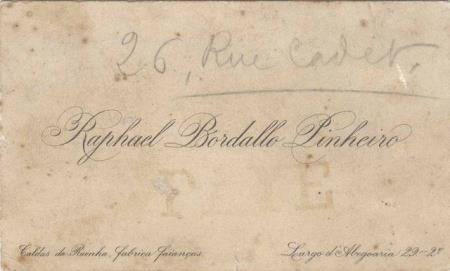 26, Rue Cadet.
Raphael Bordallo Pinheiro
Caldas da Rainha, fabrica faianças
Largo d'Abegoaria 29-2º